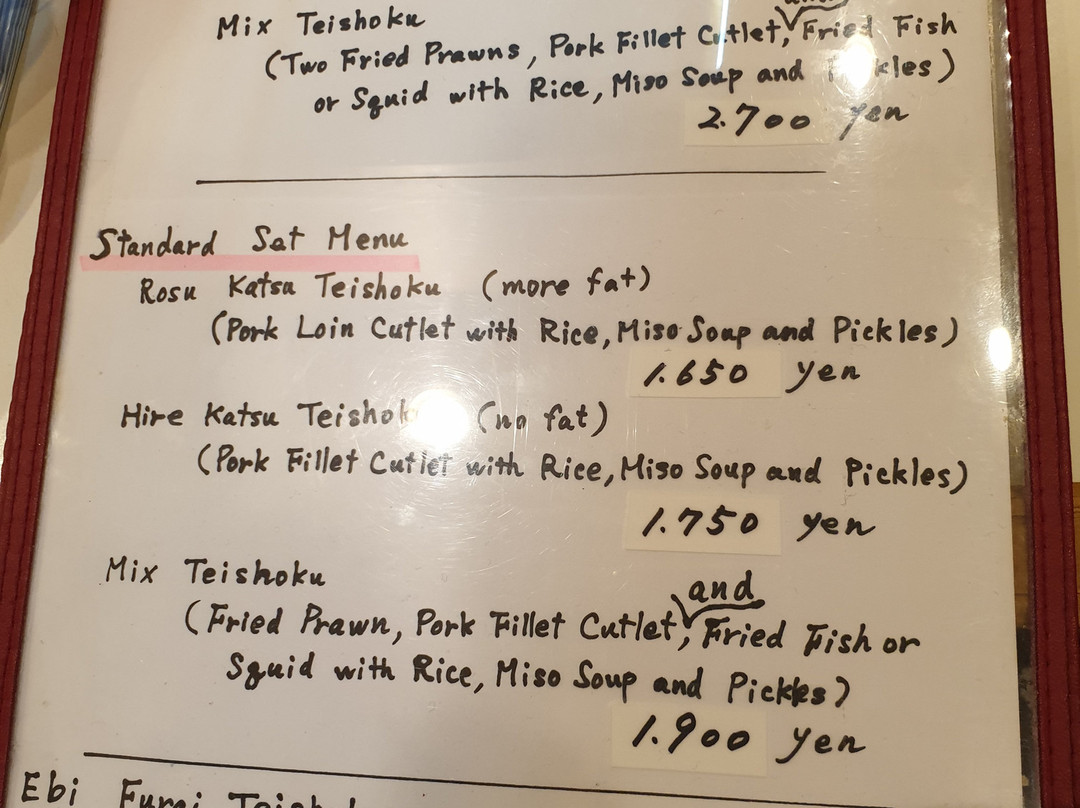 Mix Teishoku
(Two Fried Prawns, Pork Fillet Cutlet, Fried Fish
or Squid with Rice, Miso Soup and Pickles)
2.700 yen
Standard Set Menu
Rosu Katsu Teishoku (more fat)
(Pork Loin Cutlet with Rice, Miso Soup and Pickles)
1.650 yen
Hire Katsu Teishoku (no fat)
(Pork Fillet Cutlet with Rice, Miso Soup and Pickles)
1.750 yen
Mix Teishoku
and
(Fried Prawn, Pork Fillet Cutlet, Fried Fish or
Squid with Rice, Miso Soup and Pickles)
1.900 yen
Ebi Furai